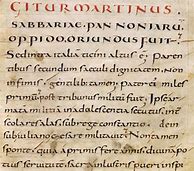 GITUR MARTINUS
SABBARIAE PANNONIARU
OPPIDO ORIUNDUS FUIT
Sed intra italia ticini altus ẽ paren
tibus secundum saeculi dignitatem non
infimis gentilibus tamen pater ei miles
primũ post tribunus militũ fuit Ipse ar
matã militiã in adolescentia secutus int
scolares alas sub rege constantio dein
sub iuliano cesare militauit Non tamen
sponte quia a primis fere annis diuinã po
tius seruitutẽ sacra inlustris pueri inspi